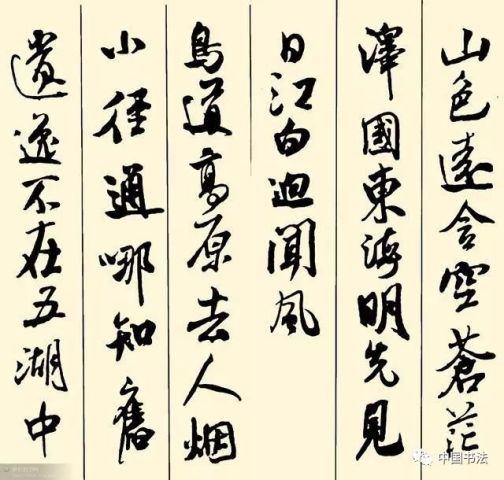 山色遠含空蒼茫
澤國東海明先見
日江白迥聞風
鳥道高原去人烟
小径通哪知舊
遺逸不在五湖中
中国书法